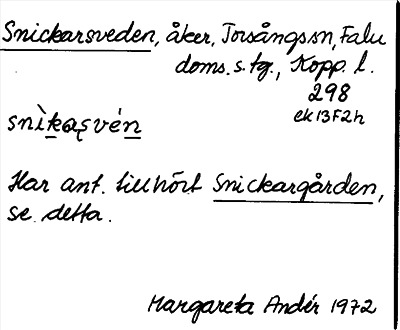 Snickarsveden, åker, Torsångs sn, Falu
doms. s. tg., Kopp. l.
298
ek 13F2h
snìkąsvén
Har ant. tillhört Snickargården,
se detta.
Margareta Andér 1972